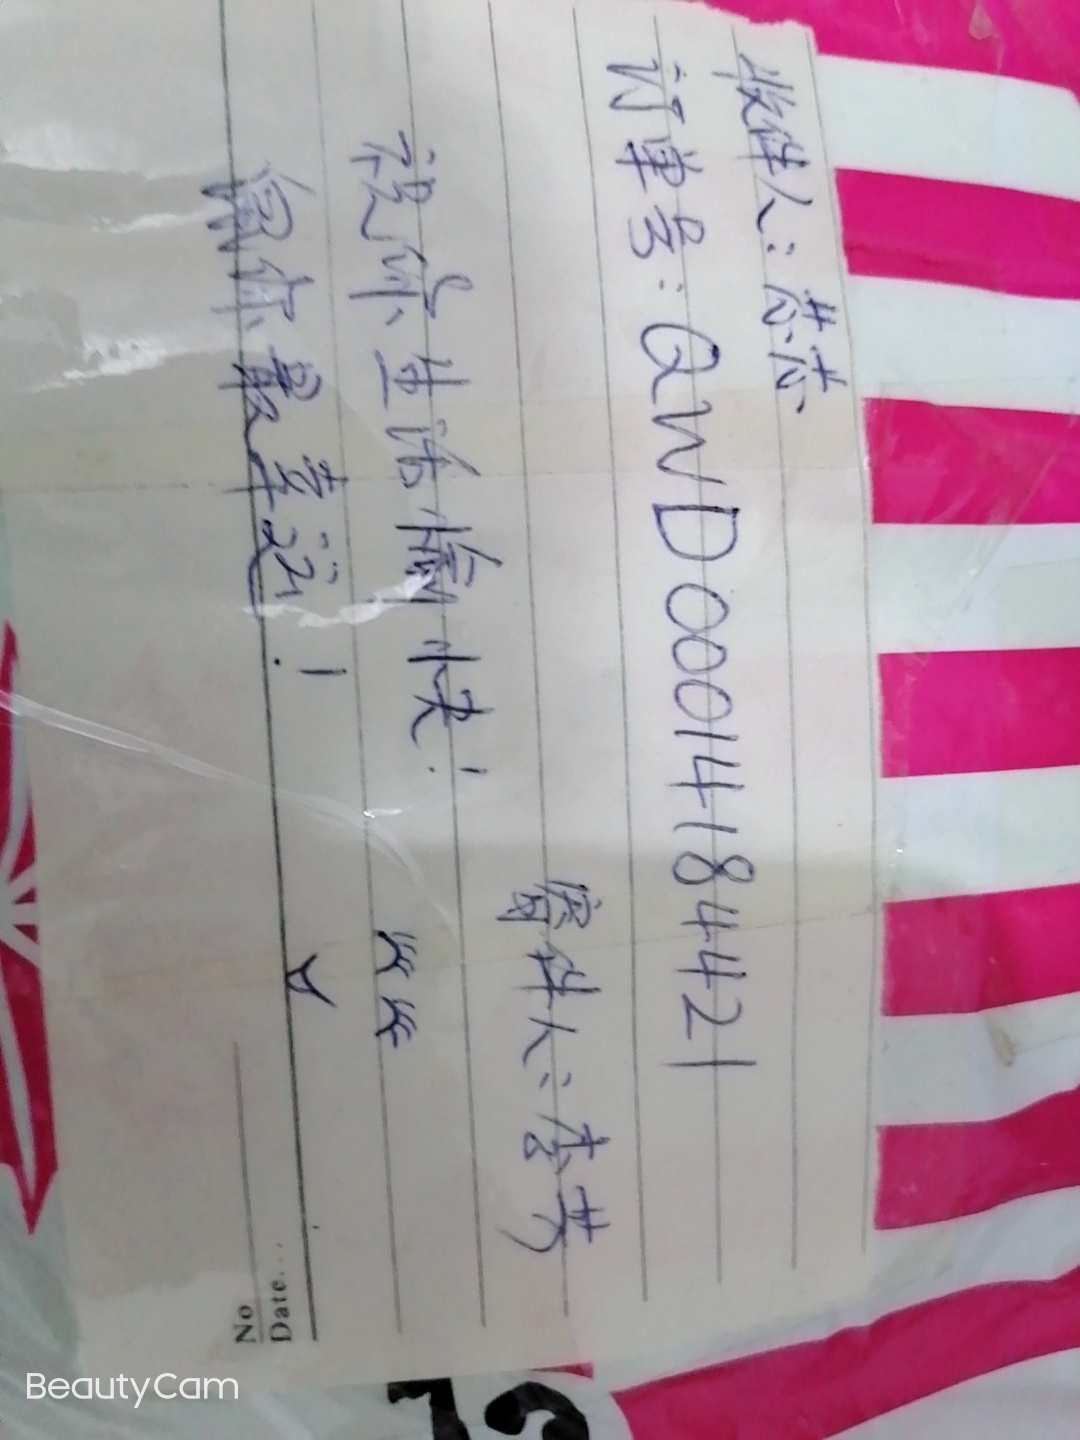 收件人：
订单号：QWD00014184421
寄件人：李芳
祝你生活愉快！
您最幸运！
No
Date...
BeautyCam